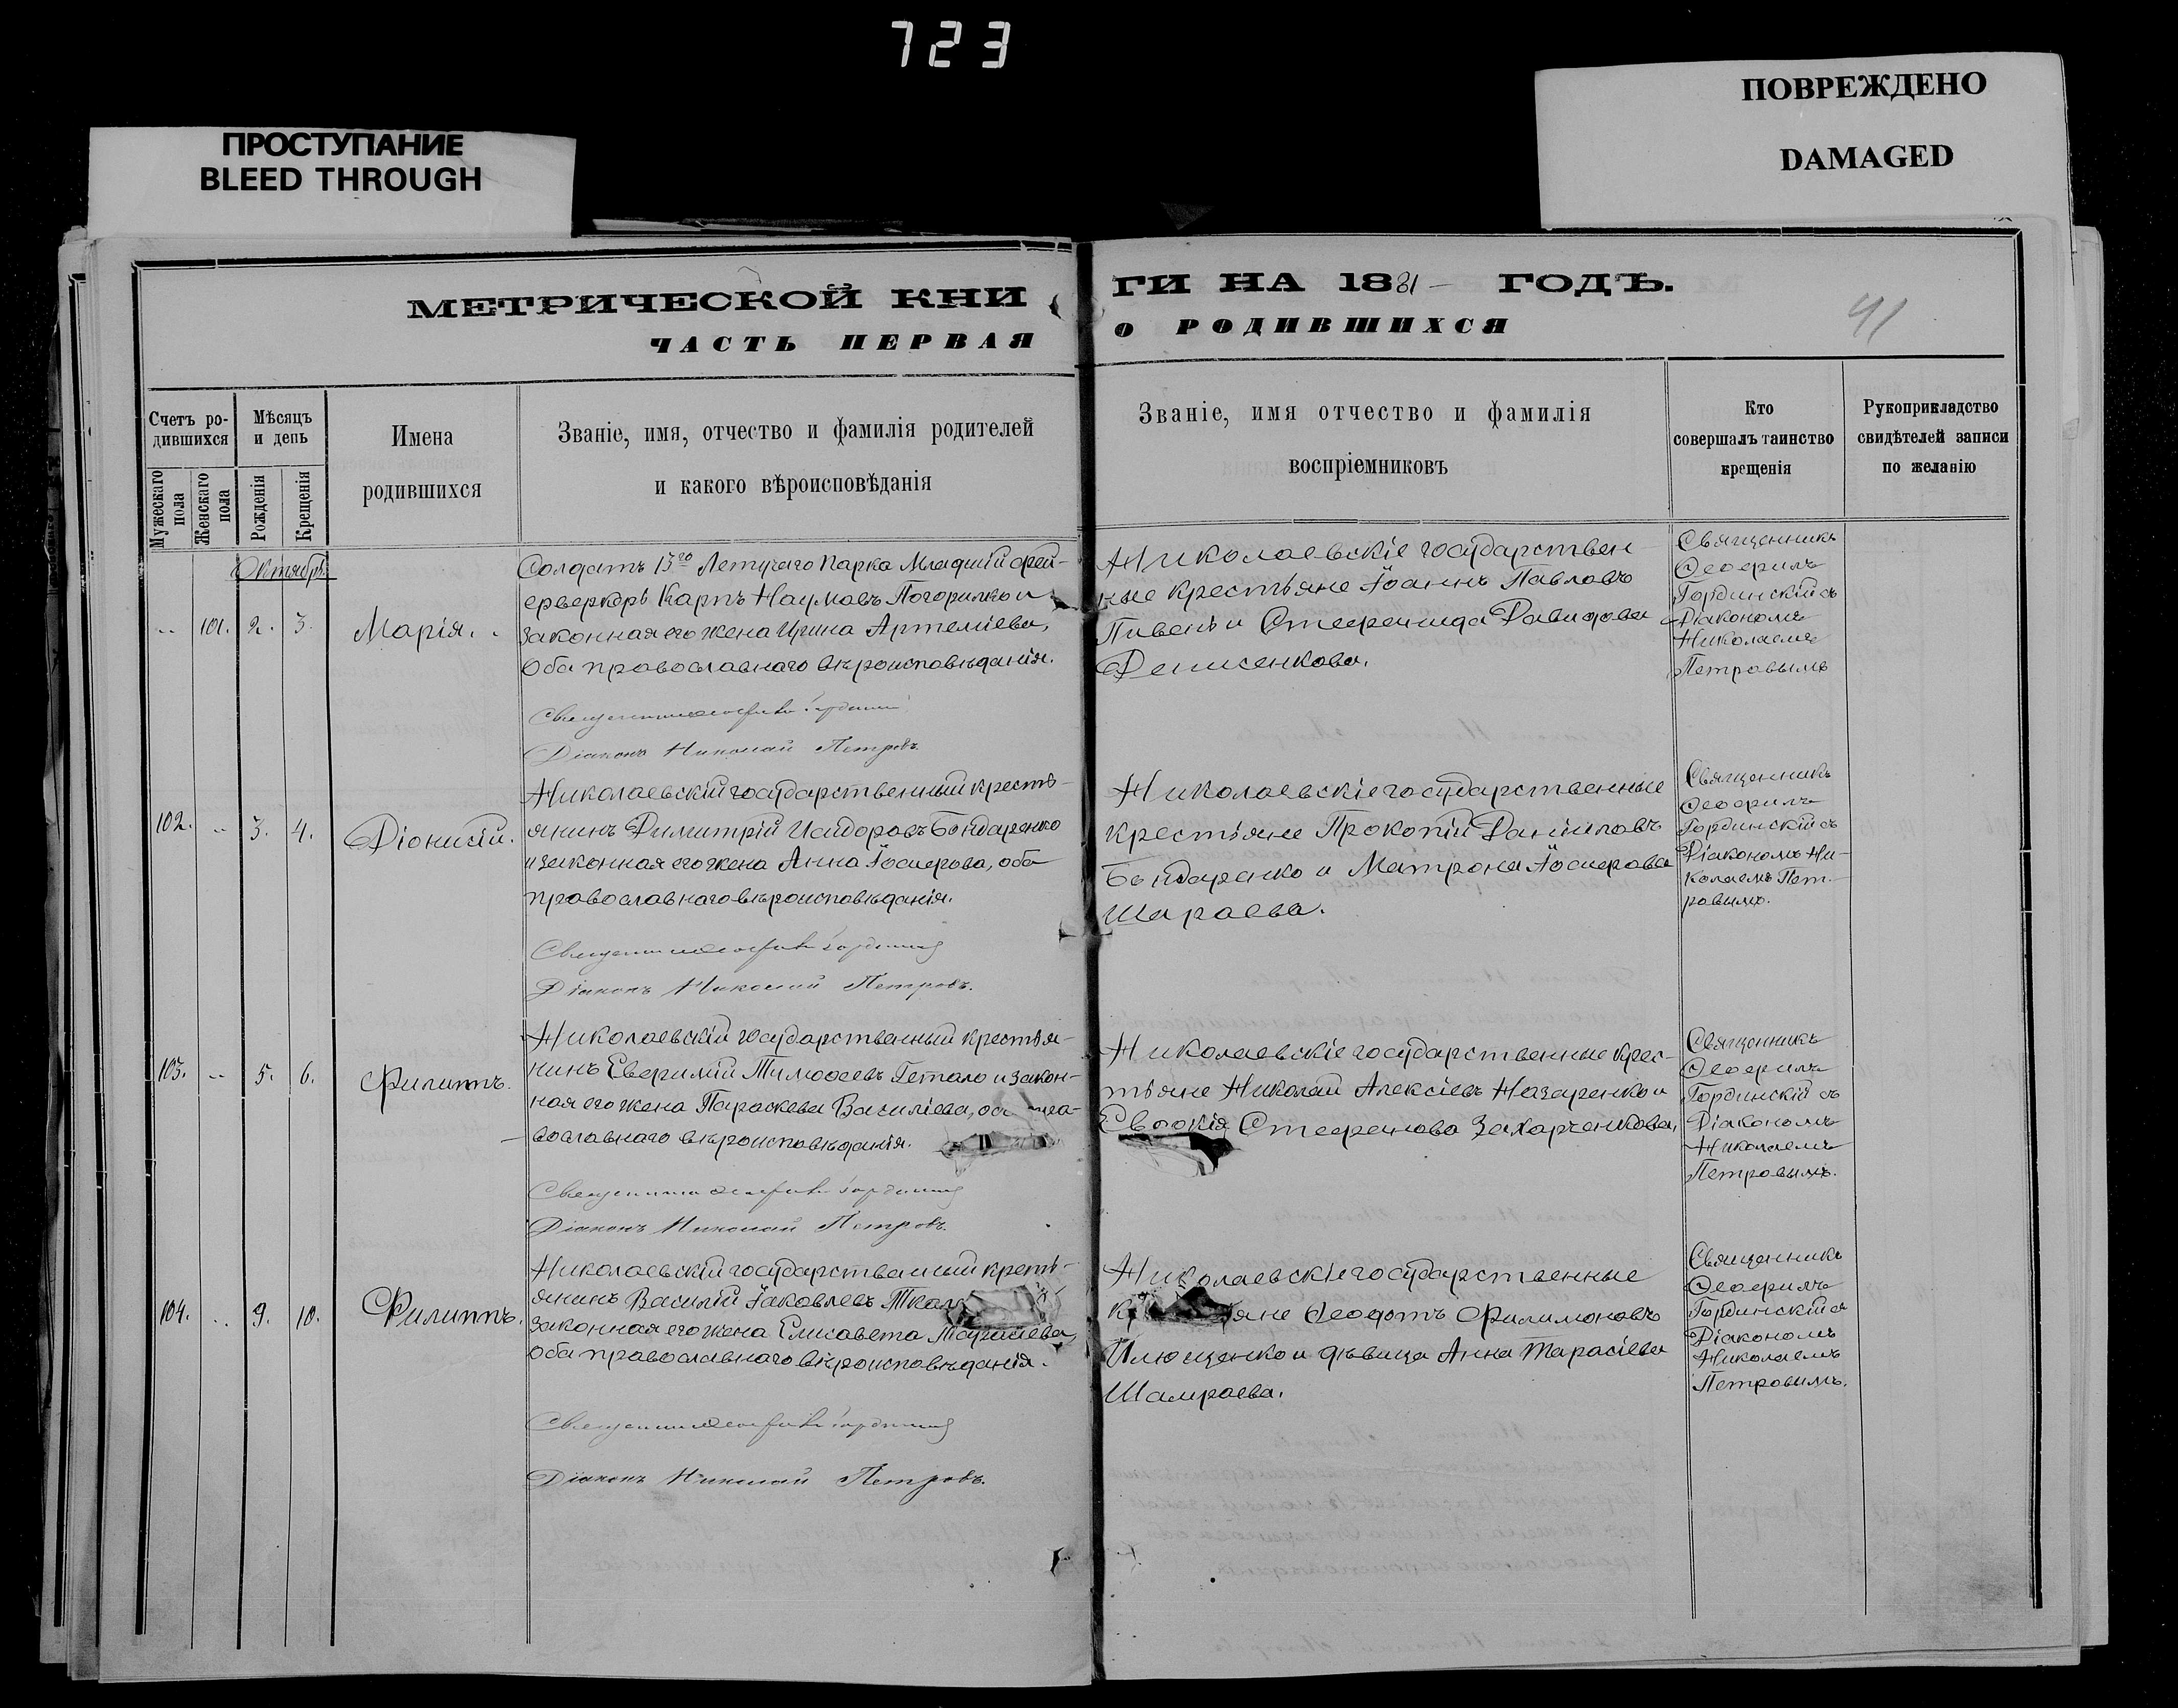 723
ПРОСТУПАНИЕ
BLEED THROUGH
ПОВРЕЖДЕНО
DAMAGED
МЕТРИЧЕСКОЙ КНИ
ГИ НА 1881 ГОДЪ.
41
ЧАСТЬ ПЕРВАЯ
О РОДИВШИХСЯ
Счетъ ро-
дившихся
Мужескаго
пола
Женскаго
пола
Мѣсяцъ
и день
Рожденія
Крещенія
Имена
родившихся
Званіе, имя, отчество и фамилія родителей
и какого вѣроисповѣданія
Званіе, имя отчество и фамилія
воспріемниковъ
Кто
совершалъ таинство
крещенія
Рукоприкладство
свидѣтелей записи
по желанію
Октябрь
101. 2. 3.
Марія.
Солдатъ 13го Летучаго Парка Младшій фей-
ерверкеръ Карпъ Наумовъ Погорилко и
законная его жена Ирина Артеміева,
Оба православнаго вѣроисповѣданія.
Діаконъ Николай Петровъ.
Николаевскіе государствен-
ные крестьяне Іоаннъ Павловъ
Пивень и Стефанида Давидова
Денисенкова.
Священникъ
Ѳеофилъ
Гординскій съ
Діакономъ
Николаемъ
Петровымъ
102. 3. 4.
Діонисій.
Николаевскій государственный кресть-
янинъ Димитрій Исидоровъ Бондаренко
и законная его жена Анна Іосифова, оба
православнаго вѣроисповѣданія.
Діаконъ Николай Петровъ.
Николаевскіе государственные
крестьяне Прокопій Даніиловъ
Бондаренко и Матрона Іосифова
Шараева.
Священникъ
Ѳеофилъ
Гординскій съ
Діакономъ Ни-
колаемъ Пет-
ровымъ.
103. 5. 6.
Филиппъ.
Николаевскій государственный крестья-
нинъ Евфимій Тимоѳеевъ Гетало и закон-
ная его жена Параскева Василіева,
вославнаго вѣроисповѣданія.
Діаконъ Николай Петровъ.
Николаевскіе государственные крес-
тьяне Николай Алексіевъ Назаренко и
Евдокія Стефанова Захарченкова,
Священникъ
Ѳеофилъ
Гординскій съ
Діакономъ
Николаемъ
Петровымъ.
104. 9. 10.
Филиппъ.
Николаевскій государственный кресть-
янинъ Василій Іаковлевъ
законная его жена Елисавета Тарасіева,
Оба православнаго вѣроисповѣданія.
Діаконъ Николай Петровъ.
Николаевскіе государственные
яне Ѳеодотъ Филимоновъ
Илющенко и дѣвица Анна Тарасіева
Шамраева.
Священникъ
Ѳеофилъ
Гординскій съ
Діакономъ
Николаемъ
Петровымъ.